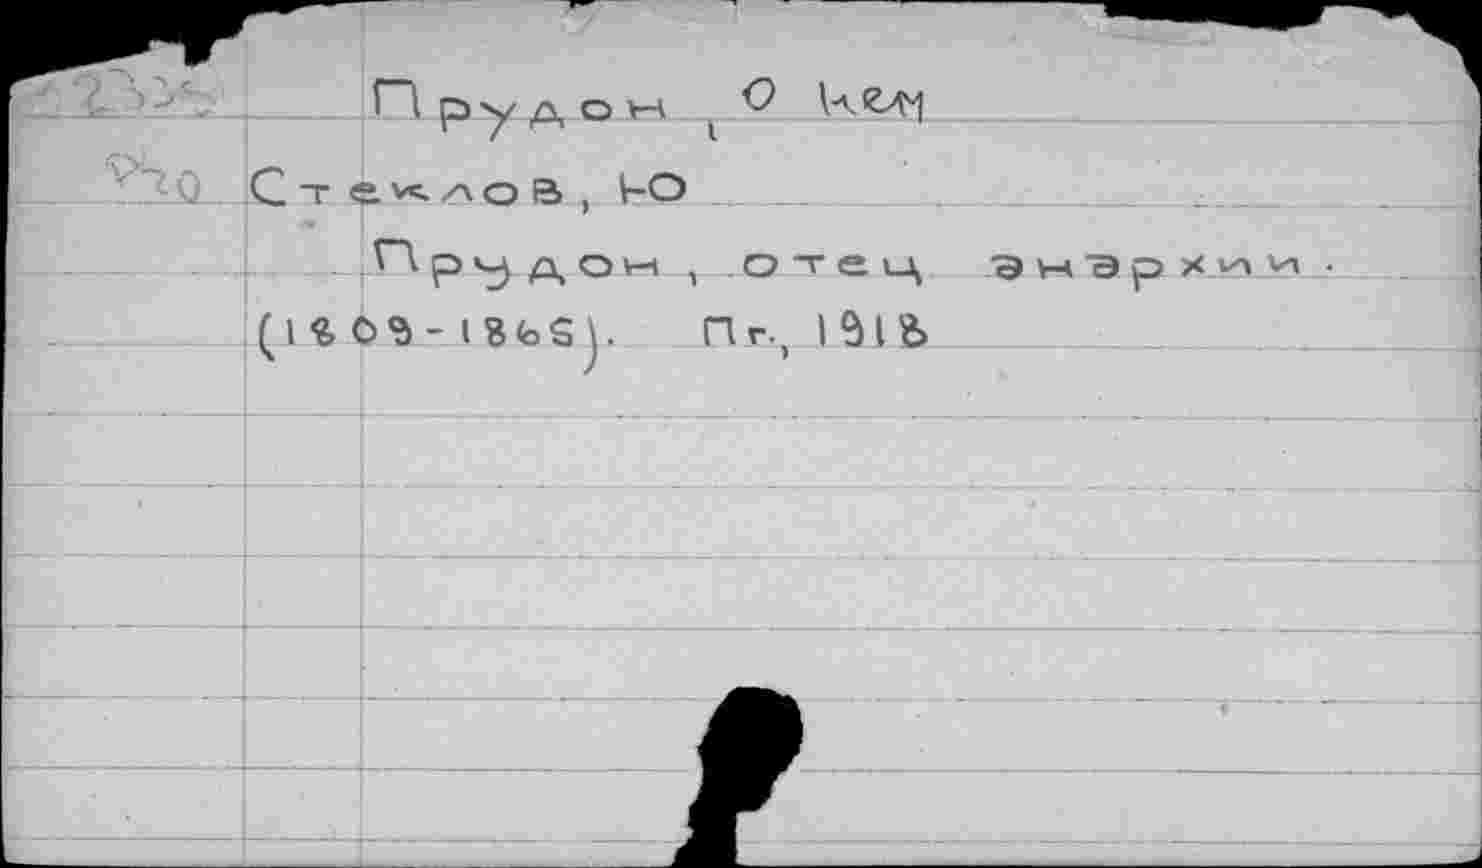 Прудон, О нем
Стеклов, Ю
Прудон, отец анархии.
(1809-1865). Пг., 1918